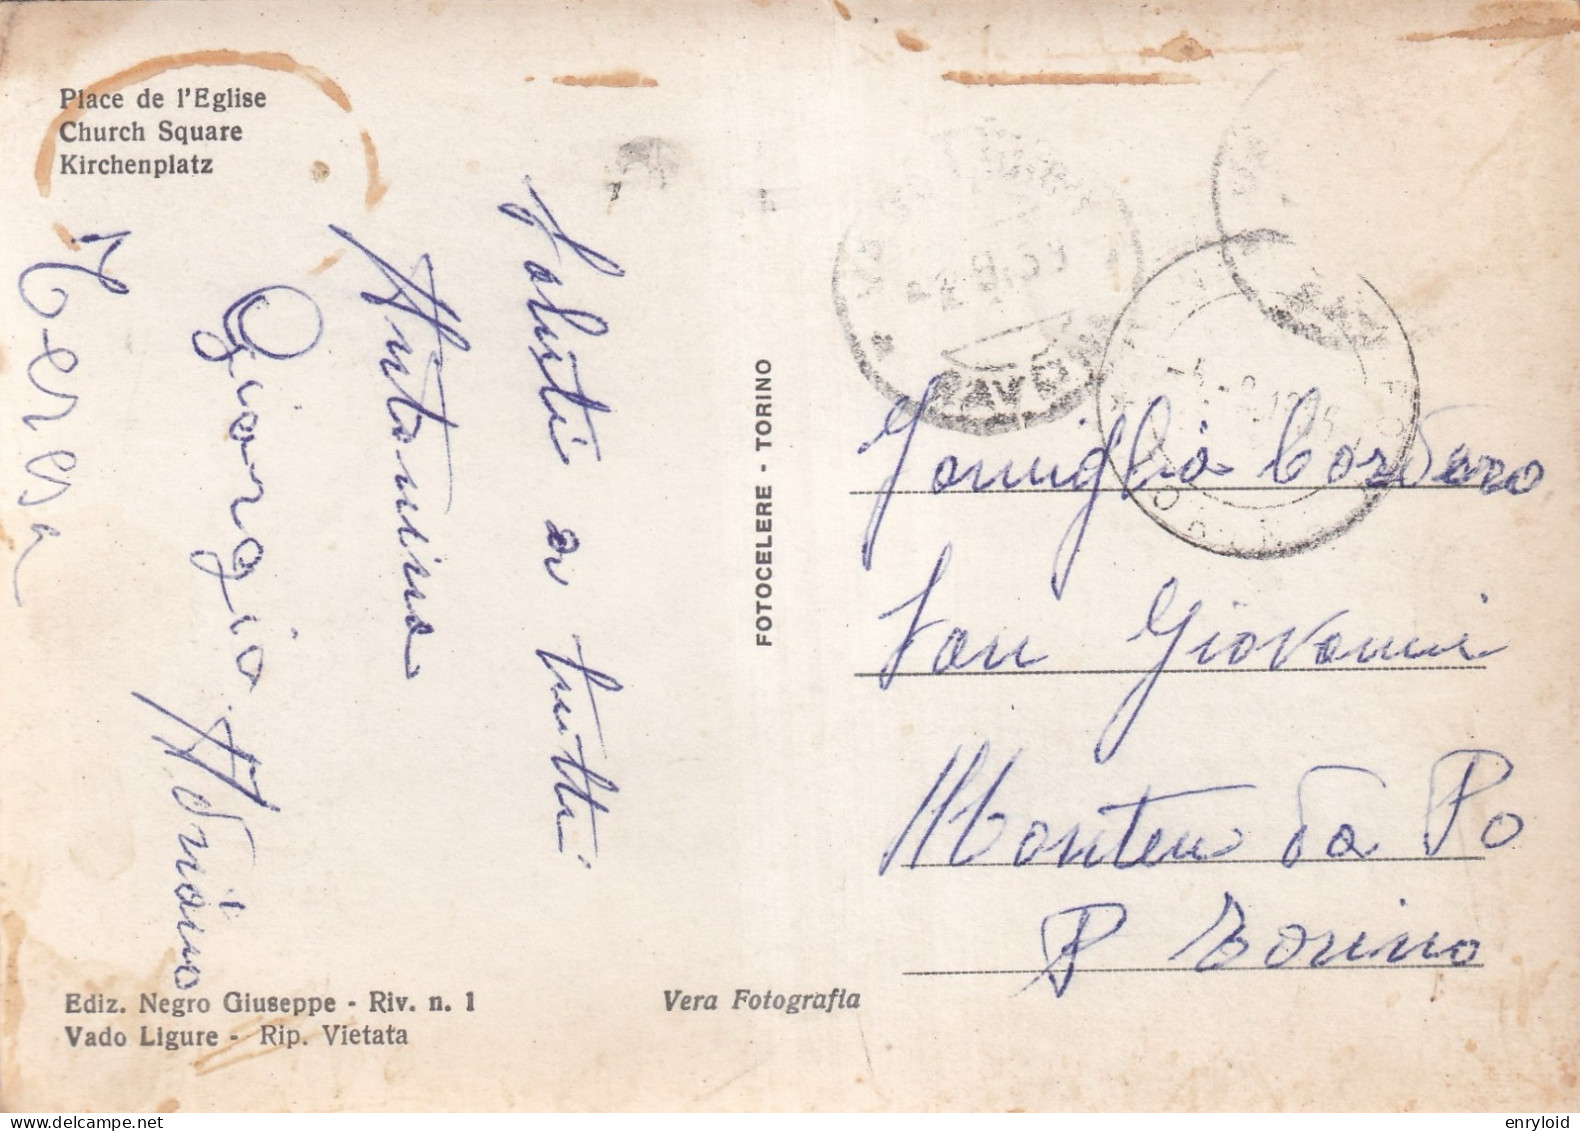 Place de l'Eglise
Church Square
Kirchenplatz
Saluti a tutti
Antonino
Giorgio
Adriano
Teresa
Ediz. Negro Giuseppe - Riv. n. 1
Vado Ligure - Rip. Vietata
Vera Fotografia
FOTOCELERE - TORINO
Famiglia Cordero
San Giovanni
Monteu da Po
P Torino
enryloid